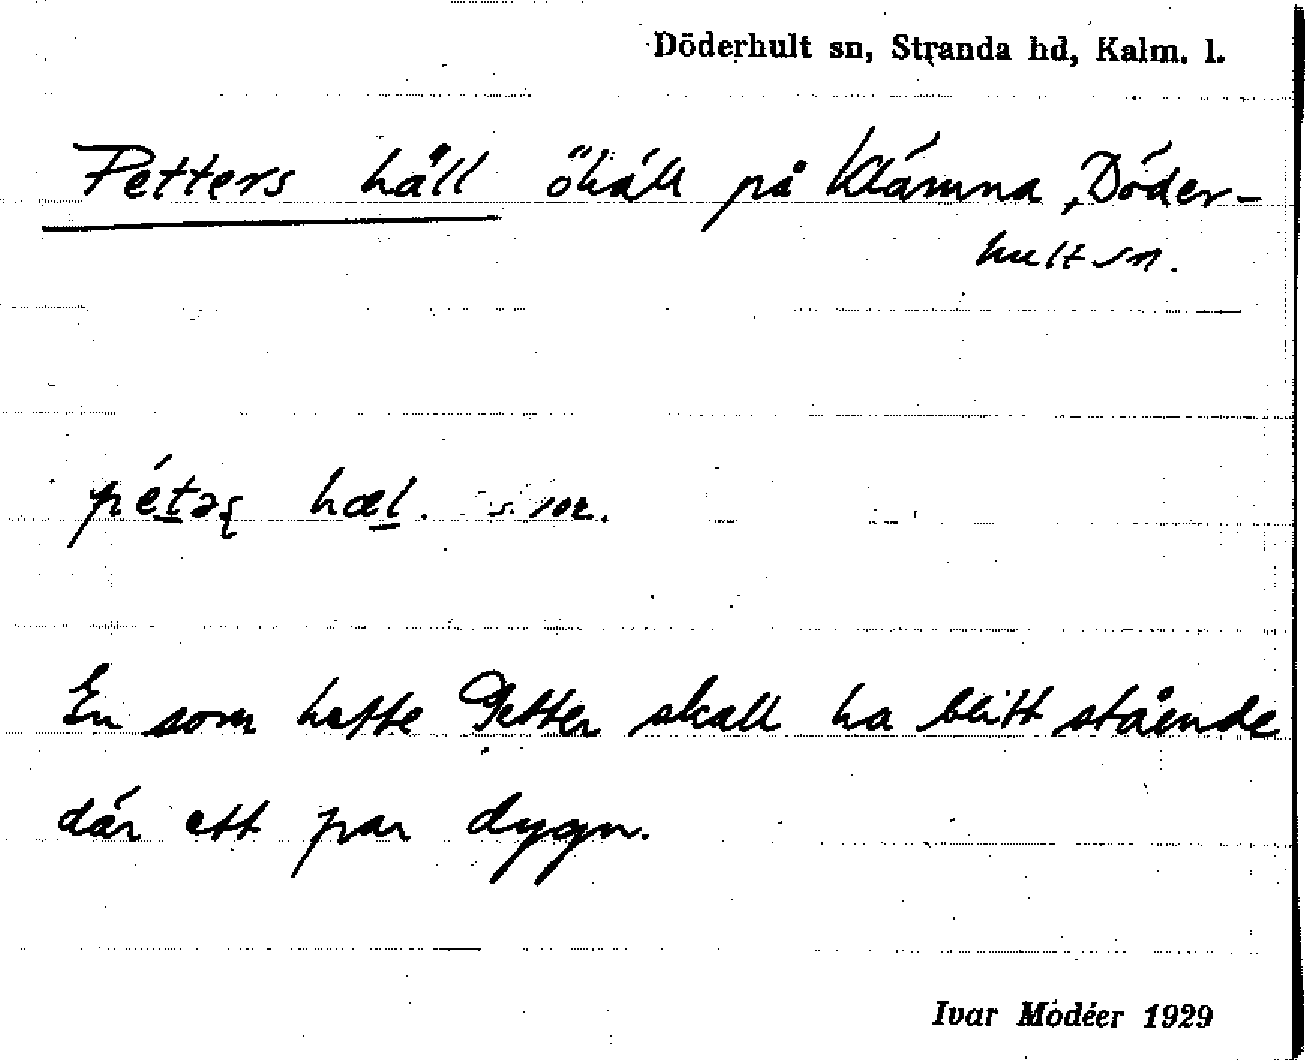 Döderhult sn, Stranda hd, Kalm. l.
Petters häll öhäll på Klämna, Döder-
hult sn.
pétəʂ hæl.
En som hette Petter skall ha blitt stående
där ett par dygn.
Ivar Modéer 1929